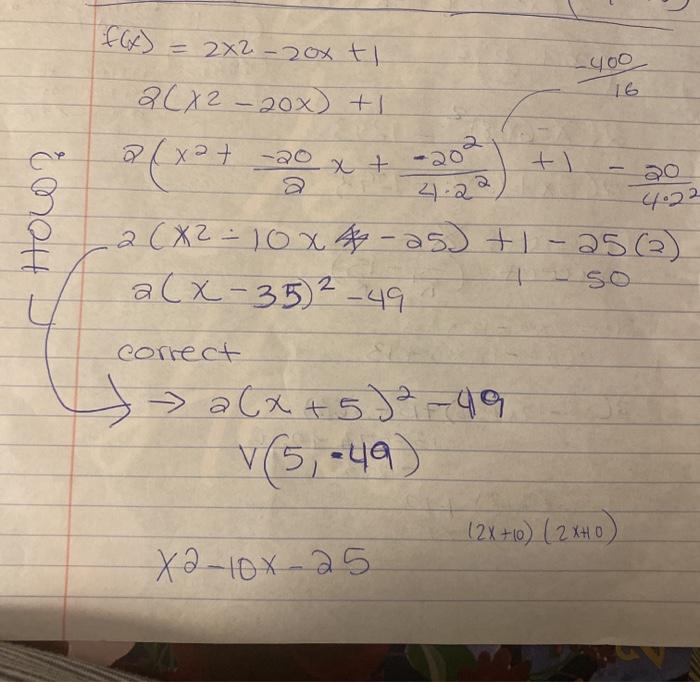 f(x) = 2x2 - 20x + 1
-400/16
2(x2 - 20x) + 1
2(x2 + -20/2 x + -20²/4·2²) + 1 - 20/4·2²
2(x2 - 10x - 25) + 1 - 25(2)
1 - 50
2(x - 35)² - 49
correct
→ 2(x + 5)² - 49
V(5, -49)
(2x+10) (2x+10)
x2 - 10x - 25